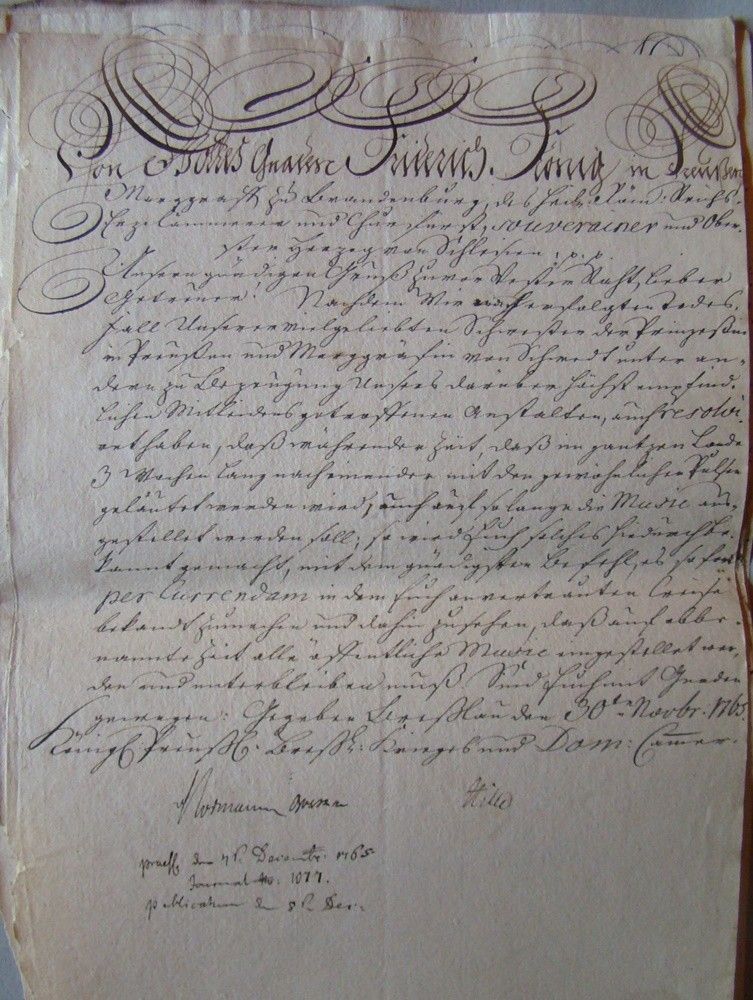 Von Gottes Gnaden Friderich König in Preußen
Marggraff zu Brandenburg, des Heil: Röm: Reichs-
Ertz Cämmerer und Churfürst, souverainer und Ober-
ster Hertzog von Schlesien p. p.
Unsern gnädigen Gruß zuvor Vester Raht, lieber
Getreuer! Nachdem Wir nach erfolgten Todes-
fall Unserer vielgeliebten Schwester der Prinzeßin
in Preußen und Marggräfin von Schwedt unter an-
dern zu Bezeugung Unsers darüber höchst empfind-
lichen Mitleidens getroffenen Anstalten, auch resolvi-
ret haben, daß während der Zeit, daß im gantzen Lande
3 Wochen lang nacheinander mit den gewöhnlichen Pulsen
geläutet werden wird, auch auf so lange die Music ein-
gestellet werden soll; so wird Euch solches hiedurch be-
kannt gemacht, mit dem gnädigsten Befehl, es sofort
per Currendam in dem Euch anvertrauten Creise
bekandt zu machen und dahin zu sehen, daß auf obbe-
nannte Zeit alle öffentliche Music eingestellet wer-
den und unterbleiben muß. Sind Euch mit Gnaden
gewogen. Gegeben Breßlau den 30ten Novbr. 1765
Königl. Preußl. Breßl. Krieges und Dom: Cammer.
praes. den 7t. Decembr. 1765
Journal No: 1077.
publicatum d. 8t. Dec.